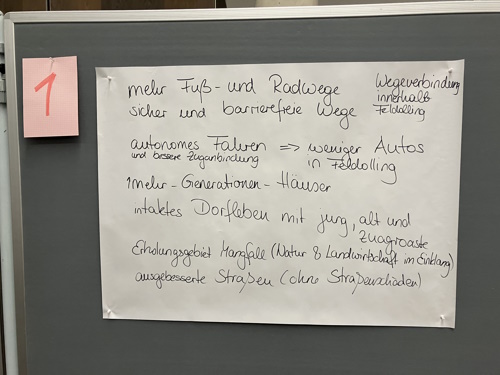 1
mehr Fuß- und Radwege
Wegeverbindung
innerhalb
Feldolling
sicher und barrierefreie Wege
autonomes Fahren => weniger Autos
und bessere Zuganbindung
in Feldolling
Mehr-Generationen-Häuser
intaktes Dorfleben mit jung, alt und
zuagroaste
Erholungsgebiet Mangfall (Natur & Landwirtschaft im Einklang)
ausgebesserte Straßen (ohne Straßenschäden)